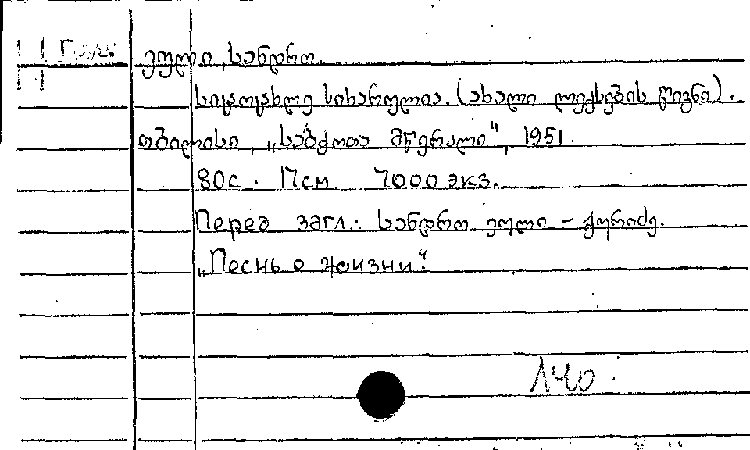 ეული, სანდრო.
სიცოცხლე სიხარულია. (ახალი ლექსების წიგნი).
თბილისი, „საბჭოთა მწერალი“, 1951
80с. 17см 7000 экз.
Перед загл.: სანდრო ეული - ქურიძე.
„Песнь о жизни“.